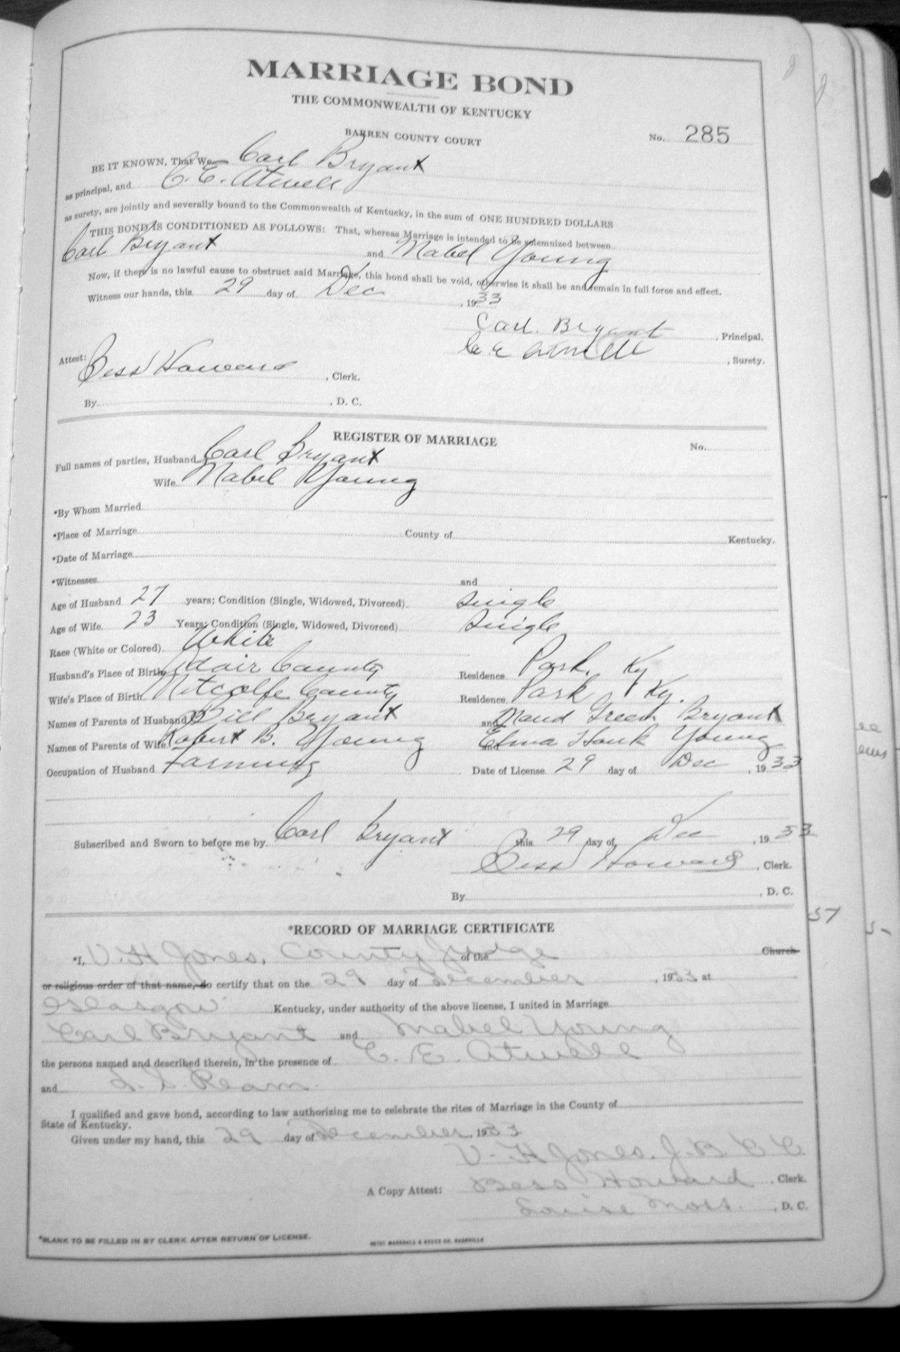 MARRIAGE BOND
THE COMMONWEALTH OF KENTUCKY
BARREN COUNTY COURT
No. 285
BE IT KNOWN, That We Carl Bryant
as principal, and C. E. Atwell
as surety, are jointly and severally bound to the Commonwealth of Kentucky, in the sum of ONE HUNDRED DOLLARS
THIS BOND IS CONDITIONED AS FOLLOWS: That, whereas Marriage is intended to be solemnized between
Carl Bryant and Mabel Young
Now, if there is no lawful cause to obstruct said Marriage, this bond shall be void, otherwise it shall be and remain in full force and effect.
Witness our hands, this 29 day of Dec, 1933
Carl. Bryant, Principal.
C E Atwell, Surety.
Attest:
Bess Howard, Clerk.
By, D. C.
REGISTER OF MARRIAGE No.
Full names of parties, Husband Carl Bryant
Wife Mabel Young
*By Whom Married
*Place of Marriage County of Kentucky.
*Date of Marriage
*Witnesses and
Age of Husband 27 years; Condition (Single, Widowed, Divorced) Single
Age of Wife 23 Years; Condition (Single, Widowed, Divorced) Single
Race (White or Colored) White
Husband's Place of Birth Adair County Residence Park, Ky
Wife's Place of Birth Metcalfe County Residence Park Ky.
Names of Parents of Husband Bill Bryant and Maud Green Bryant
Names of Parents of Wife Robert B. Young Elma Young
Occupation of Husband Farming Date of License 29 day of Dec, 1933
Subscribed and Sworn to before me by Carl Bryant this 29 day of Dec, 1933
Bess Howard, Clerk.
By, D. C.
57
*RECORD OF MARRIAGE CERTIFICATE
*I, V. H Jones, County Judge of the Church
or religious order of that name, do certify that on the 29 day of December, 1933 at
Glasgow Kentucky, under authority of the above license, I united in Marriage
Carl Bryant and Mabel Young
the persons named and described therein, in the presence of C. E. Atwell
and Ream
I qualified and gave bond, according to law authorizing me to celebrate the rites of Marriage in the County of
State of Kentucky.
Given under my hand, this 29 day of December 1933
V. H Jones. J. B. C C
A Copy Attest: Bess Howard, Clerk.
Louise Moss., D. C.
*BLANK TO BE FILLED IN BY CLERK AFTER RETURN OF LICENSE.